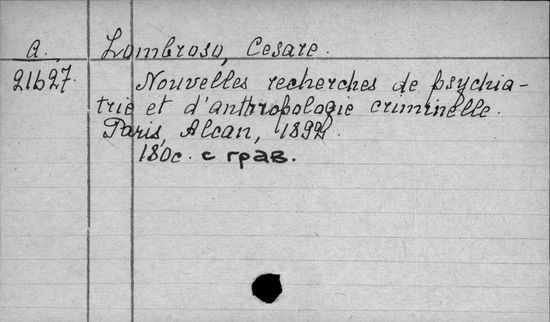 A. Lombroso, Cesare.
21627. Nouvelles recherches de psychia-
trie et d'anthropologie criminelle.
Paris, Alcan, 1892.
180с. с грав.